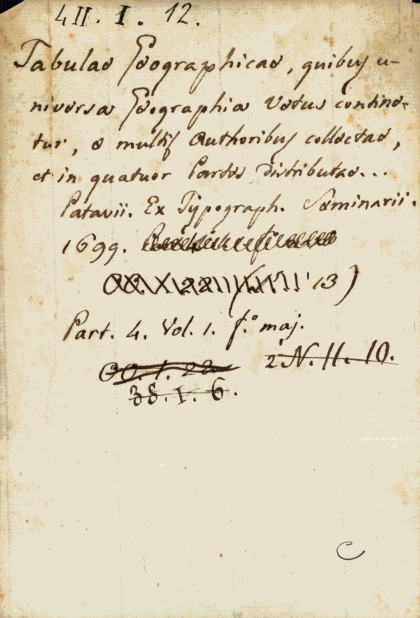 4II. I. 12.
Tabulae Geographicae, quibus u-
niversa Geographia Vetus contine-
tur, e multis Authoribus collectae,
et in quatuor Partes Distributae...
Patavii. Ex Typograph. Seminarii.
1699.
13)
Part. 4. Vol. 1. f.º maj.
2 N. II. 10.
38. I. 6.